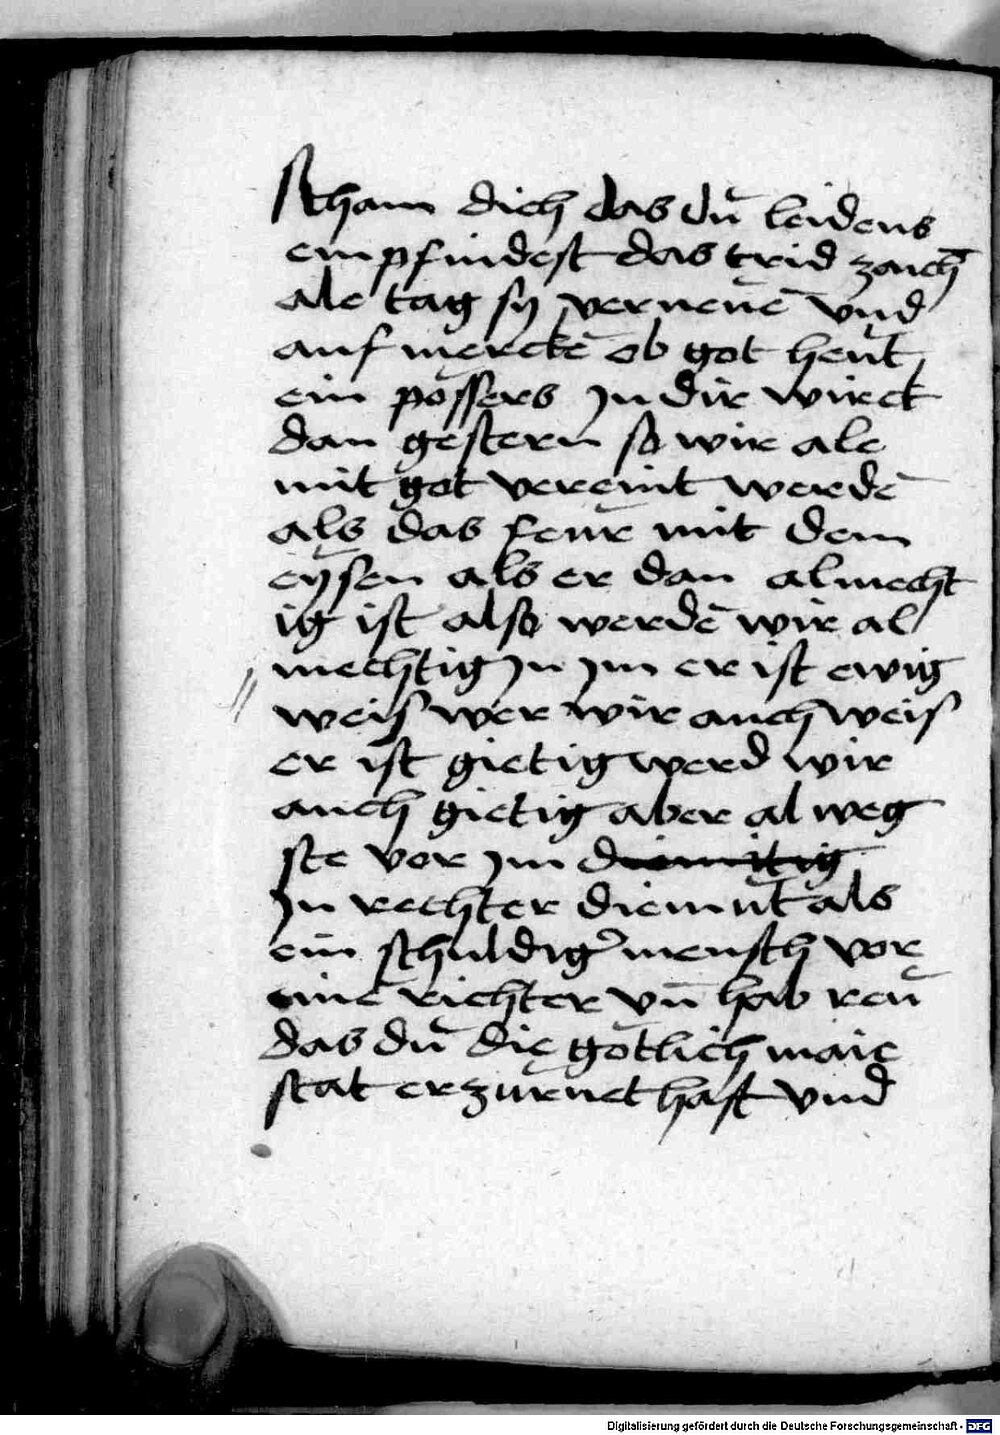 scham dich das dŭ leidens
empfindest das trid zaich
ale tag sÿ verneŭē vnd
auf merckē ob got heŭt
ein pössers Jn dir wirct
dan gestern so wir ale
mit got vereint werdē
als das feŭr mit dem
eÿsen als er dan almecht
ig ist also werdē wir al
mechtig Jn Jm er ist ewig
weis wer wir auch weis
er ist gietig werd wir
auch gietig aber al weg
ste vor Jm diemitig
Jn rechter diemŭt als
ein schuldiger mensch vor
eine richter vn̄ hab reŭ
das dŭ die gotlich maie
stat erzurnet hast vnd
Digitalisierung gefördert durch die Deutsche Forschungsgemeinschaft - DFG